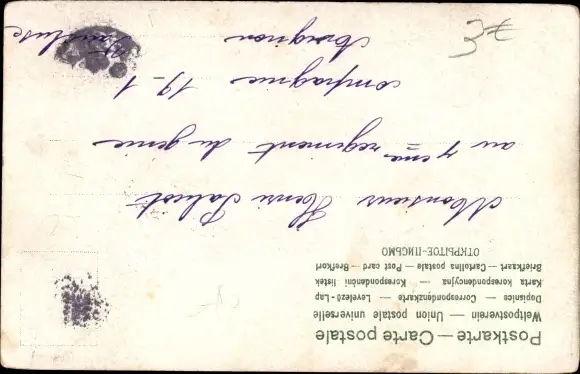 Postkarte — Carte postale
Weltpostverein — Union postale universelle
Dopisnice — Correspondenzkarte — Levelező-Lap
Karta korespondencyjna — Korespondenční lístek
Briefkaart — Cartolina postale — Post card — Brefkort
ОТКРЫТОЕ-ПИСЬМО
Monsieur Henri
au 7 eme regiment du genie
compagnie 19-1
Avignon
Vaucluse
3€